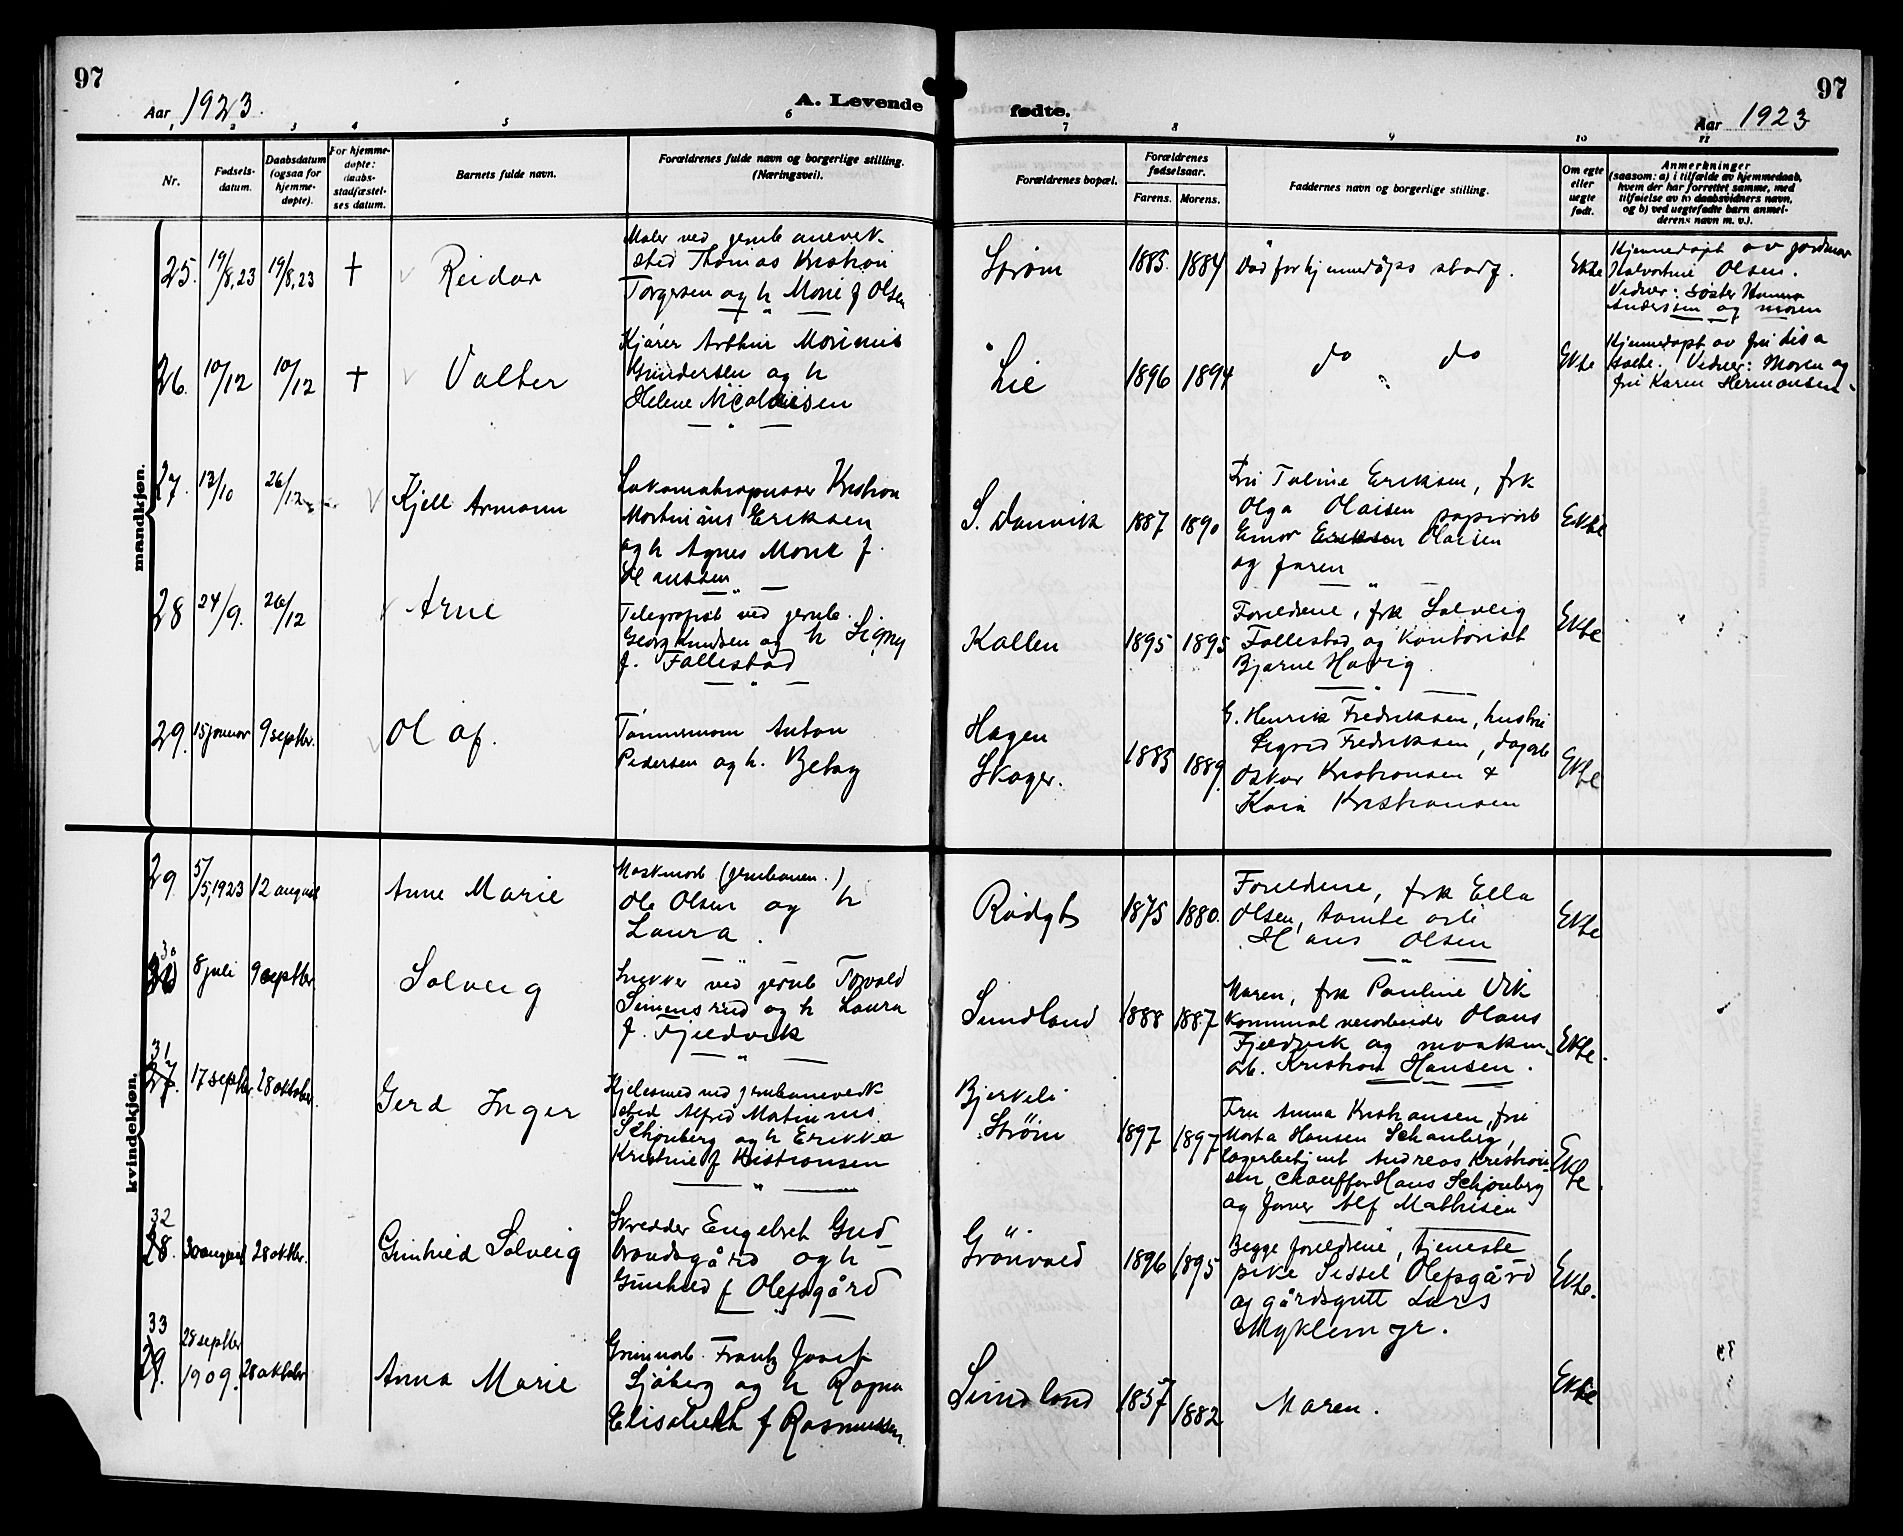 97
Aar 1923.
A. Levende
fødte.
97
Aar 1923
1 2 3 4 5 6 7 8 9 10 11
Nr.
Fødsels-
datum.
Daabsdatum
(ogsaa for
hjemme-
døpte).
For hjemme-
døpte:
daabs-
stadfæstel-
ses datum.
Barnets fulde navn.
Forældrenes fulde navn og borgerlige stilling.
(Næringsvei).
Forældrenes bopæl.
Forældrenes
fødselsaar.
Farens. Morens.
Faddernes navn og borgerlige stilling.
Om egte
eller
uegte
født.
Anmerkninger
(saasom: a) i tilfælde av hjemmedaab,
hvem der har forrettet samme, med
tilføielse av to daabsvidners navn,
og b) ved uegtefødte barn anmel-
derens navn m. v.).
mandkjøn.
25. 19/8,23 19/8,23 + Reidar
Maler ved jernb
sted Thomas Kristian
Torgersen og h Marie f Olsen
Strøm 1885. 1884 Død før hjemmedåps stadf. Ekte
Hjemmedøpt av jordmor
Halvordine Olsen.
Vidner: søster Hanna
Anderssen og moren
26. 10/12 10/12 + Valter
Kjører Arthur Marinius
Gundersen og h
Helene Nicolaisen
Lie 1896 1894 do do Ekte
Hjemmedøpt av fru
Holte. Vidner: Moren og
fru Karen Hermansen
27. 13/10 26/12 Kjell Armann
Lokomotivpusser Kristian
Martinius Eriksen
og h Agnes Marie f.
Hanssen
S. Danvik 1887 1890
Fru Taline Eriksen, frk
Olga Olaisen papirarb
Einar Eriksen Olaisen
og faren
Ekte
28 24/9. 26/12 Arne
Telegrafist ved jernb.
Georg Knudsen og h Signy
f. Fallestad
Kallen 1895 1895
Foreldrene, frk Solveig
Fallestad og Kontorist
Bjarne Havig
Ekte
29. 15 januar 9 septbr. Olaf.
Tømmermann Anton
Pedersen og h. Betsy
Hagen
Skoger.
1885 1889.
G. Henrik Fredriksen, hustru
Sigrid Fredriksen, dagarb
Oskar Kristiansen &
Kaia Kristiansen
Ekte
kvindekjøn.
29 5/5,1923 12 august Anne Marie
Maskinarb (jernbanen.)
Ole Olsen og h
Laura.
Rødgt 1875 1880.
Foreldrene, frk Ella
Olsen, tomte arb
Hans Olsen
Ekte
30
8 juli 9 septbr. Solveig
Snekker ved jernb Torvald
Simensrud og h Laura
f. Fjeldvik
Sundland 1888 1887
Moren, frk Pauline Vik
Kommunal Olaus
Fjeldvik og maskin
arb. Kristian Hansen.
Ekte.
31
27. 17 septbr. 28 oktober. Gerd Inger
Kjelesmed ved jernbaneverk
sted Alfred Martinius
Schjønberg og h Erikka
Kristine f Kristiansen
Bjerkeli
Strøm
1897 1897
Fru Anna Kristiansen, fru
Marta Hansen Schønberg,
lagerbetjent Andreas Kristian-
sen, Chauffør Hans Schjønberg
og farver Alf Mathisen
Ekte.
32
28. 30 august 28 oktbr. Gunhild Solveig
Skredder Engebret Gud
brandsgård og h
Gunhild f Olefsgård
Grønvold 1896 1895
Begge foreldrene, tjeneste
pike Sissel Olefsgård
og gårdsgutt Lars
Myklem jr.
Ekte.
33
29. 28 septbr
1909. 28 oktober Anna Marie
Frantz Josef
Sjøberg og h Ragna
Elisabeth f Rasmussen.
Sundland 1857 1882 Moren. Ekte